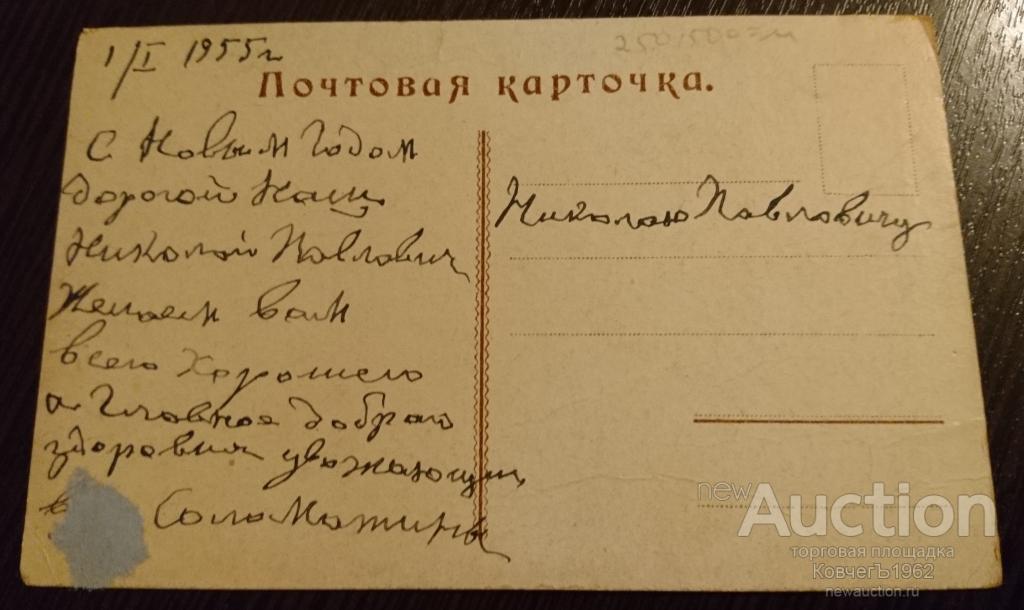 1/I 1955 г
Почтовая карточка.
С Новым Годом
Дорогой Наш
Николай Павлович
Желаем вам
всего Хорошего
а Главное доброго
здоровия уважающии
Соломатины
Николаю Павловичу
newAuction
торговая площадка
КовчегЪ1962
newauction.ru